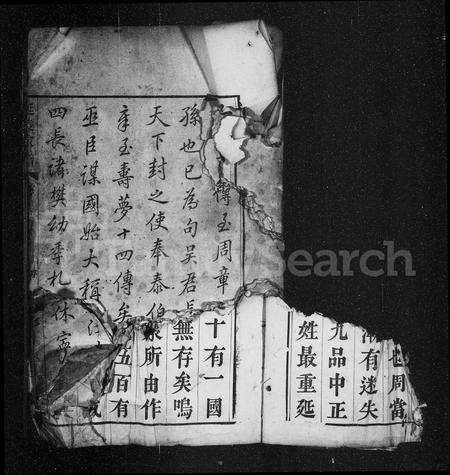 也周當
有迷失
九品中正
姓最重延
傳至周章
十有一國
孫也已為句吳君
無存矣嗚
天下封之使奉泰伯
所由作
章至壽夢十四傳矣
五百有
巫臣謀國始大稱
四長諸樊幼季札
Search